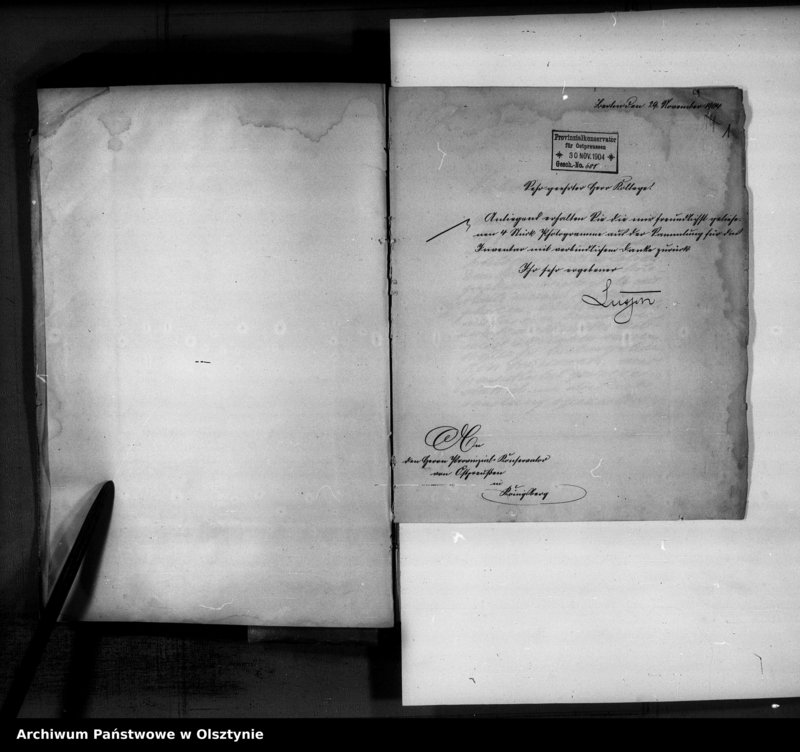 Berlin den 29. November 1904
1
Provinzialkonservator
für Ostpreussen
30 NOV. 1904
Gesch.-No. 601
Sehr geehrter Herr Kollege!
Anliegend erhalten Sie die mir freundlichst geliehe-
nen 4 Stück Photogramme aus der Sammlung für das
Inventar mit verbindlichem Danke zurück
Ihr sehr ergebener
An
den Herrn Provinzial-Konservator
von Ostpreußen
in
Königsberg
Archiwum Państwowe w Olsztynie